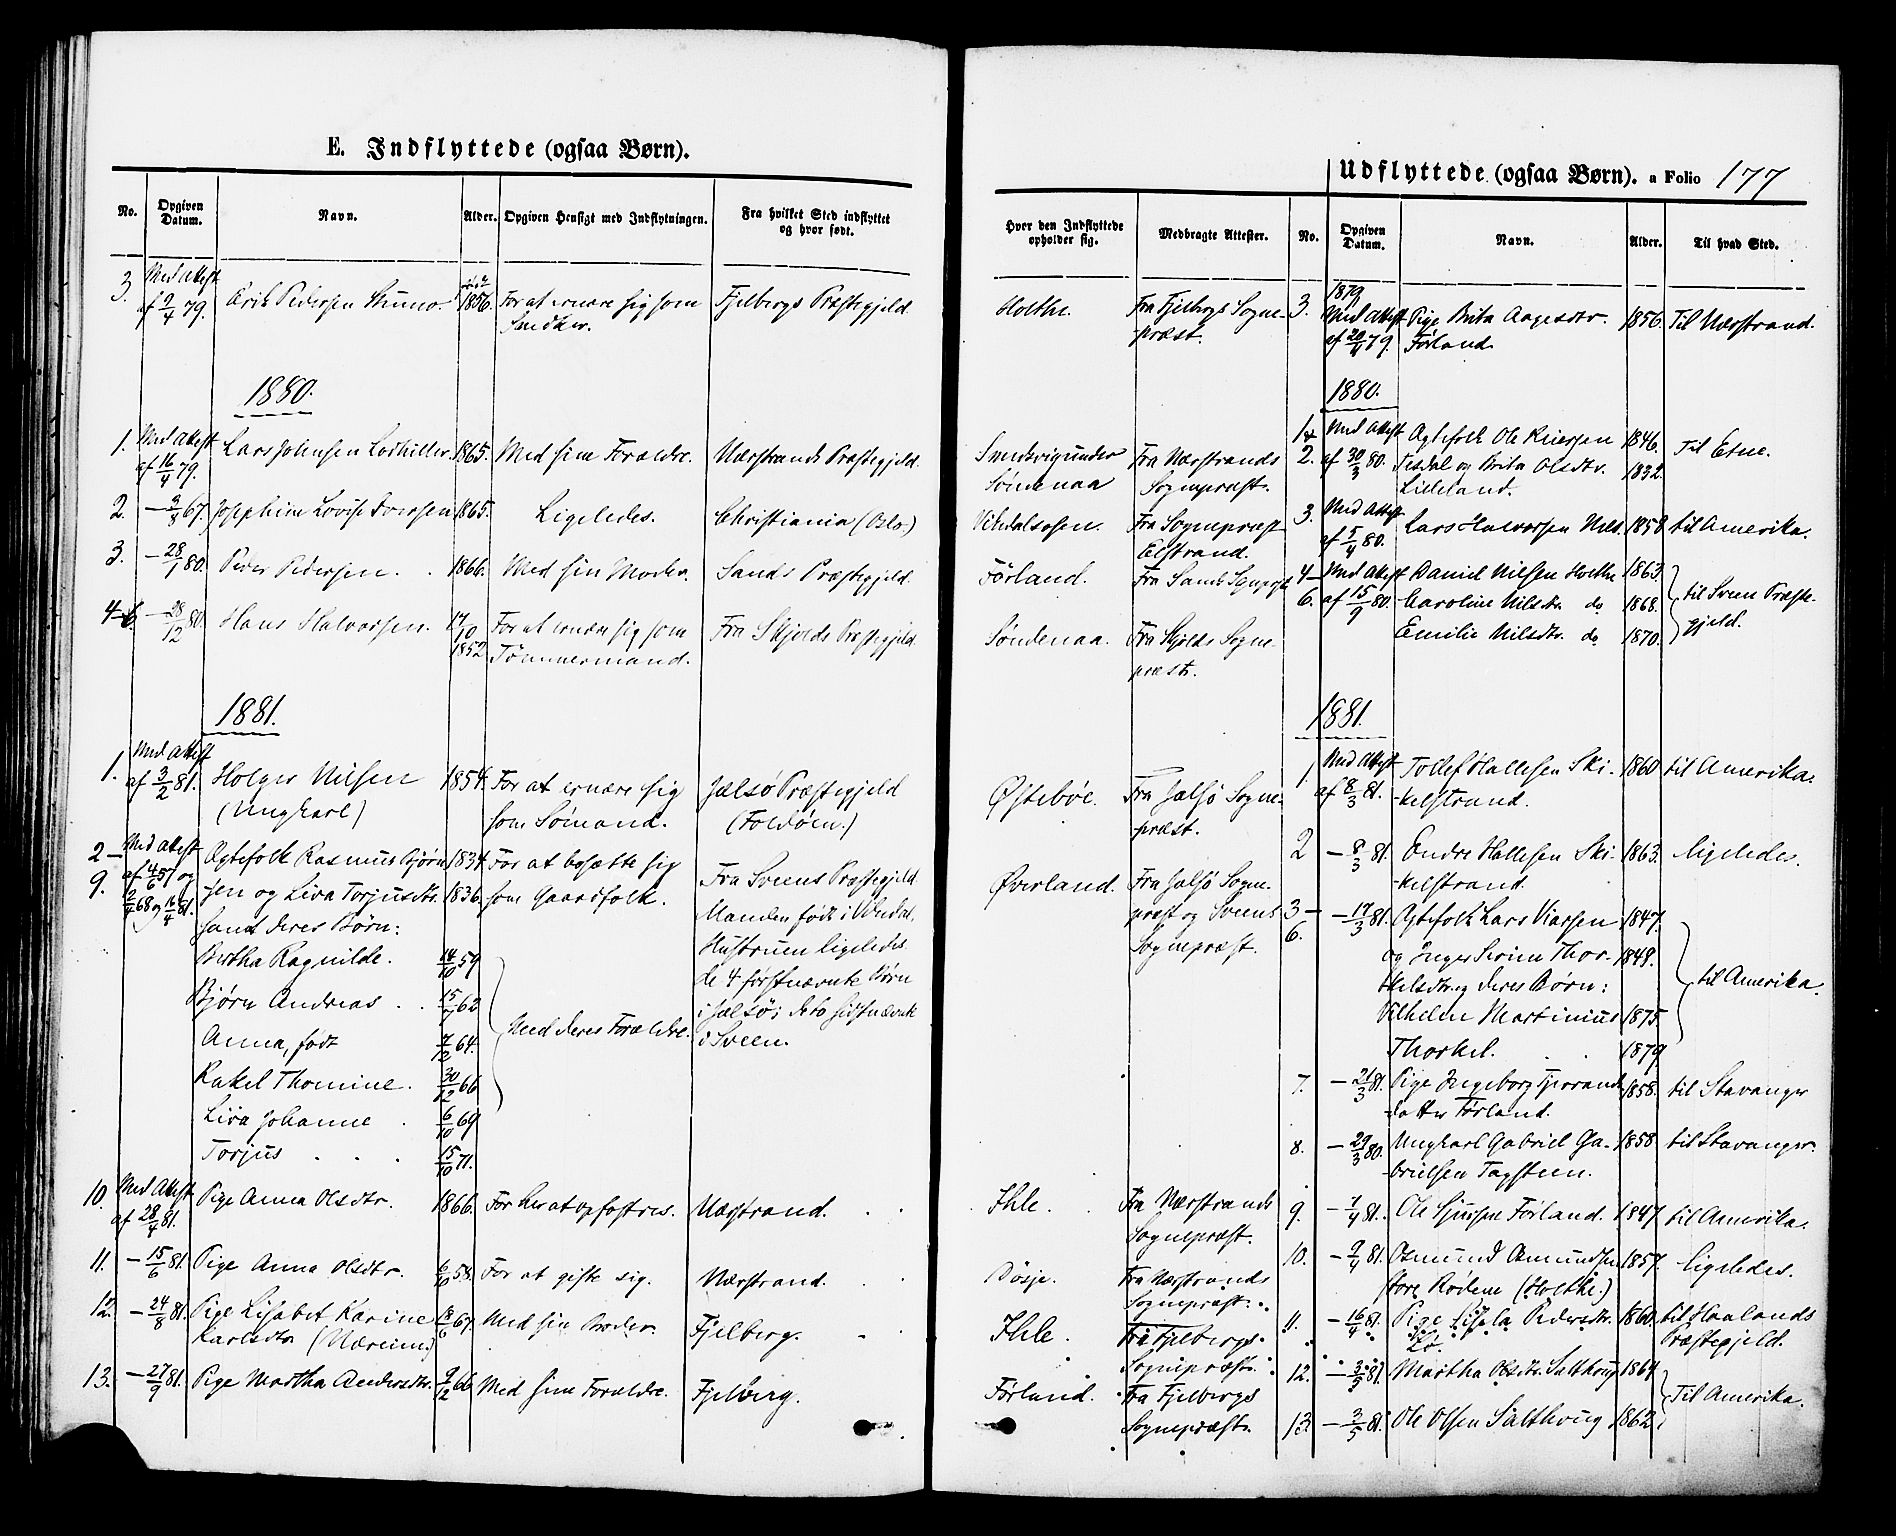 E. Indflyttede (ogsaa Børn).
No.
Opgiven Datum.
Navn.
Alder.
Opgiven Hensigt med Indflytningen.
Fra hvilket Sted indflyttet og hvor født.
3. Med Attest af 9/4 79. Pedersen 1856. For at ernære sig som Fjelbergs Præstegjeld
Smedker.
1880.
1. Med Attest af 16/4 79. Lars Johnsen 1865. Med sine Forældre. Nærstrands Præstegjeld.
2. — 3/8 67. Josephine Lovise Iversen 1865. Ligeledes. Christiania (Oslo.)
3. — 28/1 80. Peder Pedersen. 1866. Med sin Moder. Sands Præstegjeld.
4 — 28/12 80. Hans Halvorsen. 17/10 1852 For at ernære sig som Fra Skjolds Præstegjeld
Tømmermand.
1881.
1. Med Attest af 3/2 81. Holger Nilsen 1854. For at ernære sig Jælsø Præstegjeld
(Ungkarl) som Sømand. (Foldøen.)
2 — Med Attest Ægtefolk Rasmus Bjørn- 1834. For at bosætte sig Fra Sveens Præstegjeld
9. sen og Liva Torjusdtr. 1836. som Gaardfolk. Manden født i
samt deres Børn: Hustruen ligeledes.
Bertha Ragnilde. 14/10 59 de 4 førstnævnte Børn
Bjørn Andreas 15/7 62 i Jælsø; de to sidstnævnte
Anna, født 7/12 64. Med deres Forældre. i Sveen.
Rakel Thomine. 30/12 66
Liva Johanne 6/10 69
Torjus 15/10 71.
10. Med Attest af 28/4 81. Pige Anna Olsdtr. 1866. For her at opfostres. Nærstrand.
11. — 15/6 81. Pige Anna Olsdtr. 6/10 58. For at gifte sig. Nærstrand.
12. — 24/8 81. Pige Lisabet Karine 18/6 67. Med sin Broder. Fjelberg.
Karlsdtr
13. — 27/9 81. Pige Martha Andersdtr. 9/12 66 Med sine Forældre. Fjelberg.
Udflyttede (ogsaa Børn). a Folio 177
Hvor den Indflyttede opholder sig.
Medbragte Attester.
No.
Opgiven Datum.
Navn.
Alder.
Til hvad Sted.
Holthe. Fra Fjelbergs Sogne- 3. 1879 Med Attest af 20/11 79. Pige Brita Aagesdtr. 1856. Til Nærstrand.
præst. Førland.
1880.
Fra Nærstrands 1 2. Med Attest af 30/3 80. Ægtefolk Ole 1846. Til Etne.
Søndenaa Sognepræst. Tesdal og Brita Olsdtr. 1832.
Lilleland.
Vikedalsosen. Fra Sognepræst 3. Med Attest af 5/4 80. Lars Halvorsen 1858 til Amerika.
Elstrand.
Førland. Fra Sands Sognepr. 4— Med Attest Daniel Nilsen Holthe 1863.
6. af 15/9 80. Caroline Nilsdtr. do 1868. til Sveen Præste-
Søndenaa. Fra Skjolds Sogne- Emilie Nilsdtr. do 1870. gjeld.
præst.
1881.
Østebøe. Fra Jælsø Sogne- 1 Med Attest af 8/3 81. Tollef Hallesen Ski- 1860 til Amerika.
præst. -kelstrand.
2 — 8/3 81. Endre Hallesen Ski- 1863. ligeledes.
Øverland. Fra Jælsø Sogne- -kelstrand.
præst og Sveens 3— — 17/3 81. Ægtefolk Lars 1847.
Sognepræst. 6. og Inger Serine Thor- 1848.
-kelsdtr. og deres Børn: til Amerika.
Vilhelm Martinius 1875.
Thorkel. 1879
7. — 21/3 81. Pige Ingeborg 1858. til Stavanger
datter Førland.
8. — 29/3 80. Ungkarl Gabriel Ga- 1858 til Stavanger.
-brielsen
Ihle. Fra Nærstrands 9. — 7/4 81. Ole Førland. 1847 til Amerika.
Sognepræst.
Døsje. Fra Nærstrands 10. — 9/4 81. Osmund Amundsen 1857. ligeledes.
Sognepræst. store Rødne (Holthe.)
Ihle. Fra Fjelbergs 11. — 16/4 81. Pige Pedersdtr. 1860. til Haalands
Sognepræst. Præstegjeld.
12. — 3/5 81. Martha Olsdtr. 1864
Førland. Fra Fjelbergs Til Amerika.
Sognepræst. 13. — 3/5 81. Ole Olsen 1862.